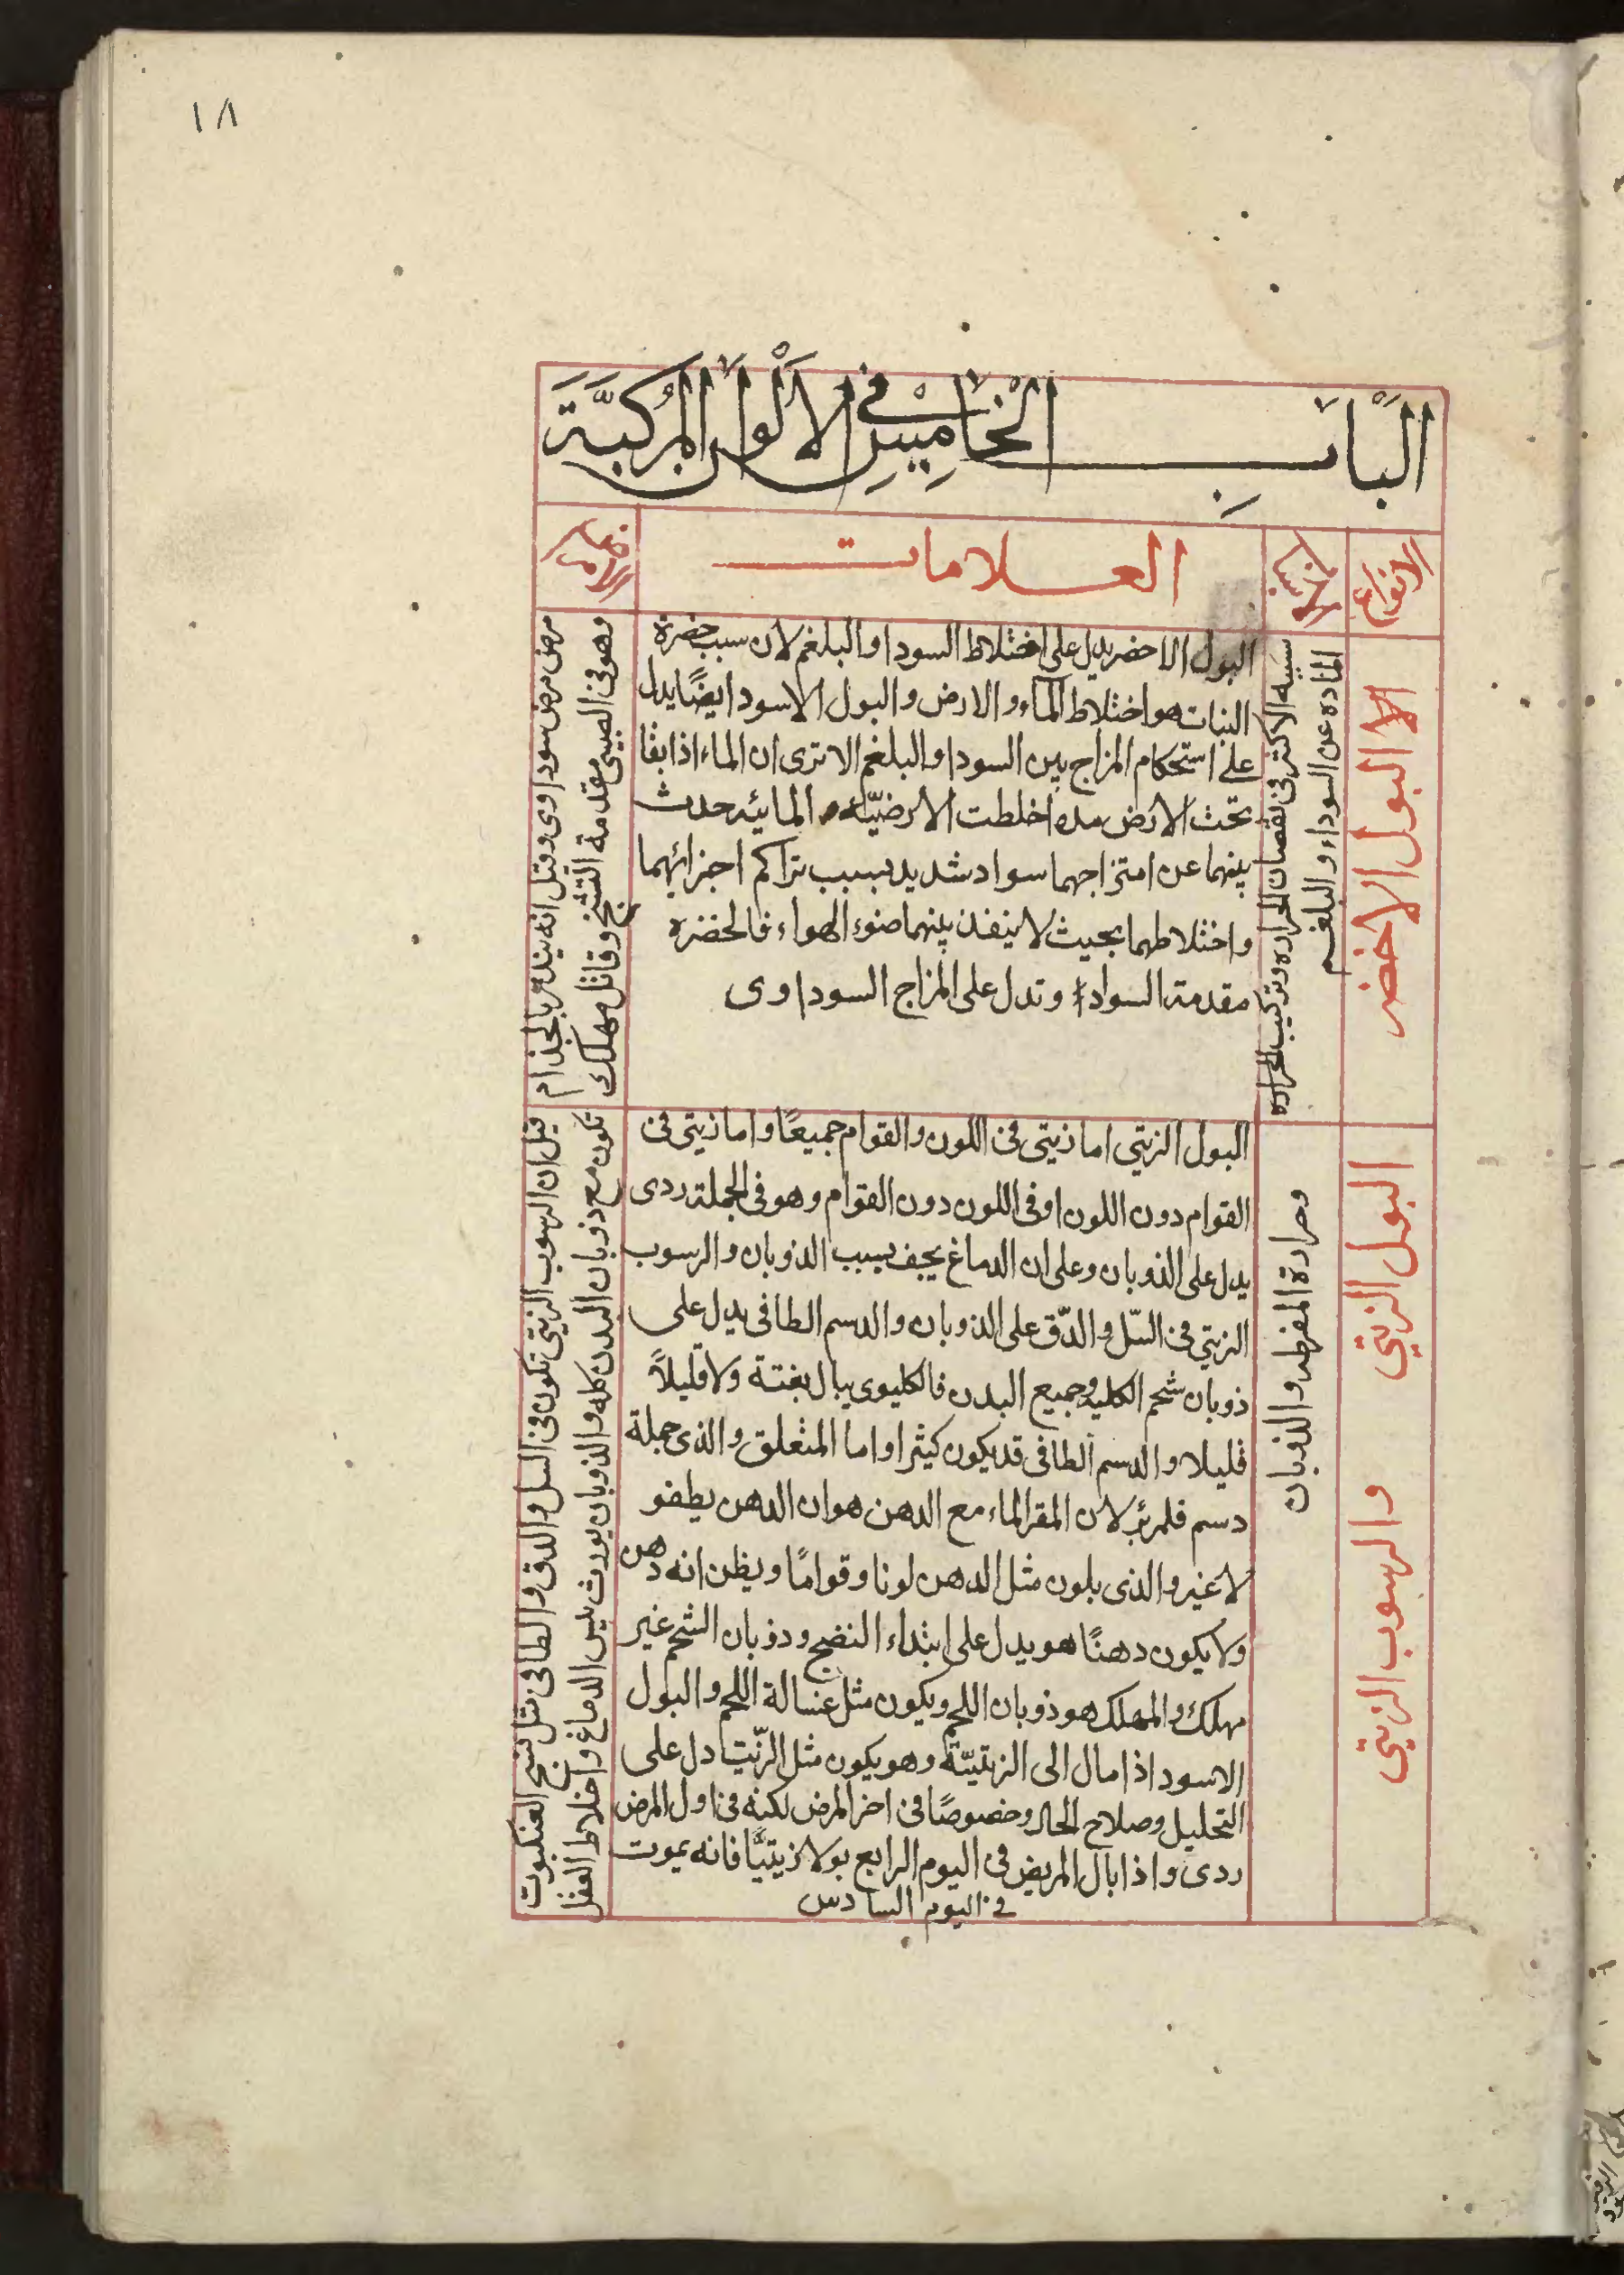 ١٨
البَابِ الْخَامِسِ فِي الأَلْوَانِ المُرَكَّبَة
الانواع
العلامات
الامراض
البول الاخضر
سببه الاكثر فى نقصان الحراره وتركيب الحراره
الماده عن السوداء والبلغم
البول الاخضر يدل على اختلاط السودا والبلغم لان سبب خضرة
النبات هو اختلاط الماء والارض والبول الاسود ايضًا يدل
على استحكام المزاج بين السودا والبلغم الا ترى ان الماء اذا بقا
تحت الارض مده اخلطت الارضيّه المائيه حدث
بينهما عن امتزاجهما سواد شديد بسبب تراكم اجزائهما
واختلاطهما بحيث لا ينفذ بينهما ضوء الهواء فالخضره
مقدمة السواد وتدل على المزاج السوداوى
وهو فى الصبيى مقدمة التشنج وقاتل مهلك
مرض مرض سوداوى وقيل انه ينذر بالجذام
البول الزيتي والرسوب الزيتي
وحرارة المفرطه والذوبان
البول الزيتي اما زيتى فى اللون والقوام جميعًا واما زيتى فى
القوام دون اللون او فى اللون دون القوام وهو فى الجملة ردى
يدل على الذوبان وعلى ان الدماغ يجف بسبب الذوبان والرسوب
الزيتي فى السّل والدّق على الذوبان والدسم الطافى يدل على
ذوبان شحم الكليه وجميع البدن فالكليوى يبال بغتة ولا قليلاً
قليلا والدسم الطافى قد يكون كثيرا واما المتعلق والذى جملة
دسم فلم ير لان المقر الماء مع الدهن هو ان الدهن يطفو
لا غير والذى يلون مثل الدهن لونا وقوامًا ويظن انه دهن
ولا يكون دهنًا هو يدل على ابتداء النضج وذوبان الشحم غير
مهلك والمهلك هو ذوبان اللحم ويكون مثل غسالة اللحم والبول
الاسود اذا مال الى الزيتيّة وهو يكون مثل الزّيت دل على
التحليل وصلاح الحال وخصوصًا فى اخر المرض لكنه فى اول المرض
ردى واذا بال المريض فى اليوم الرابع بولا زيتيًّا فانه يموت
فى اليوم السادس
تكون مع ذوبان البدن كله والذوبان يورث يبس الدماغ واخلاط العقل
قيل ان الرسوب الزيتي تكون فى السل والدق والطافى مثل نسج العنكبوت